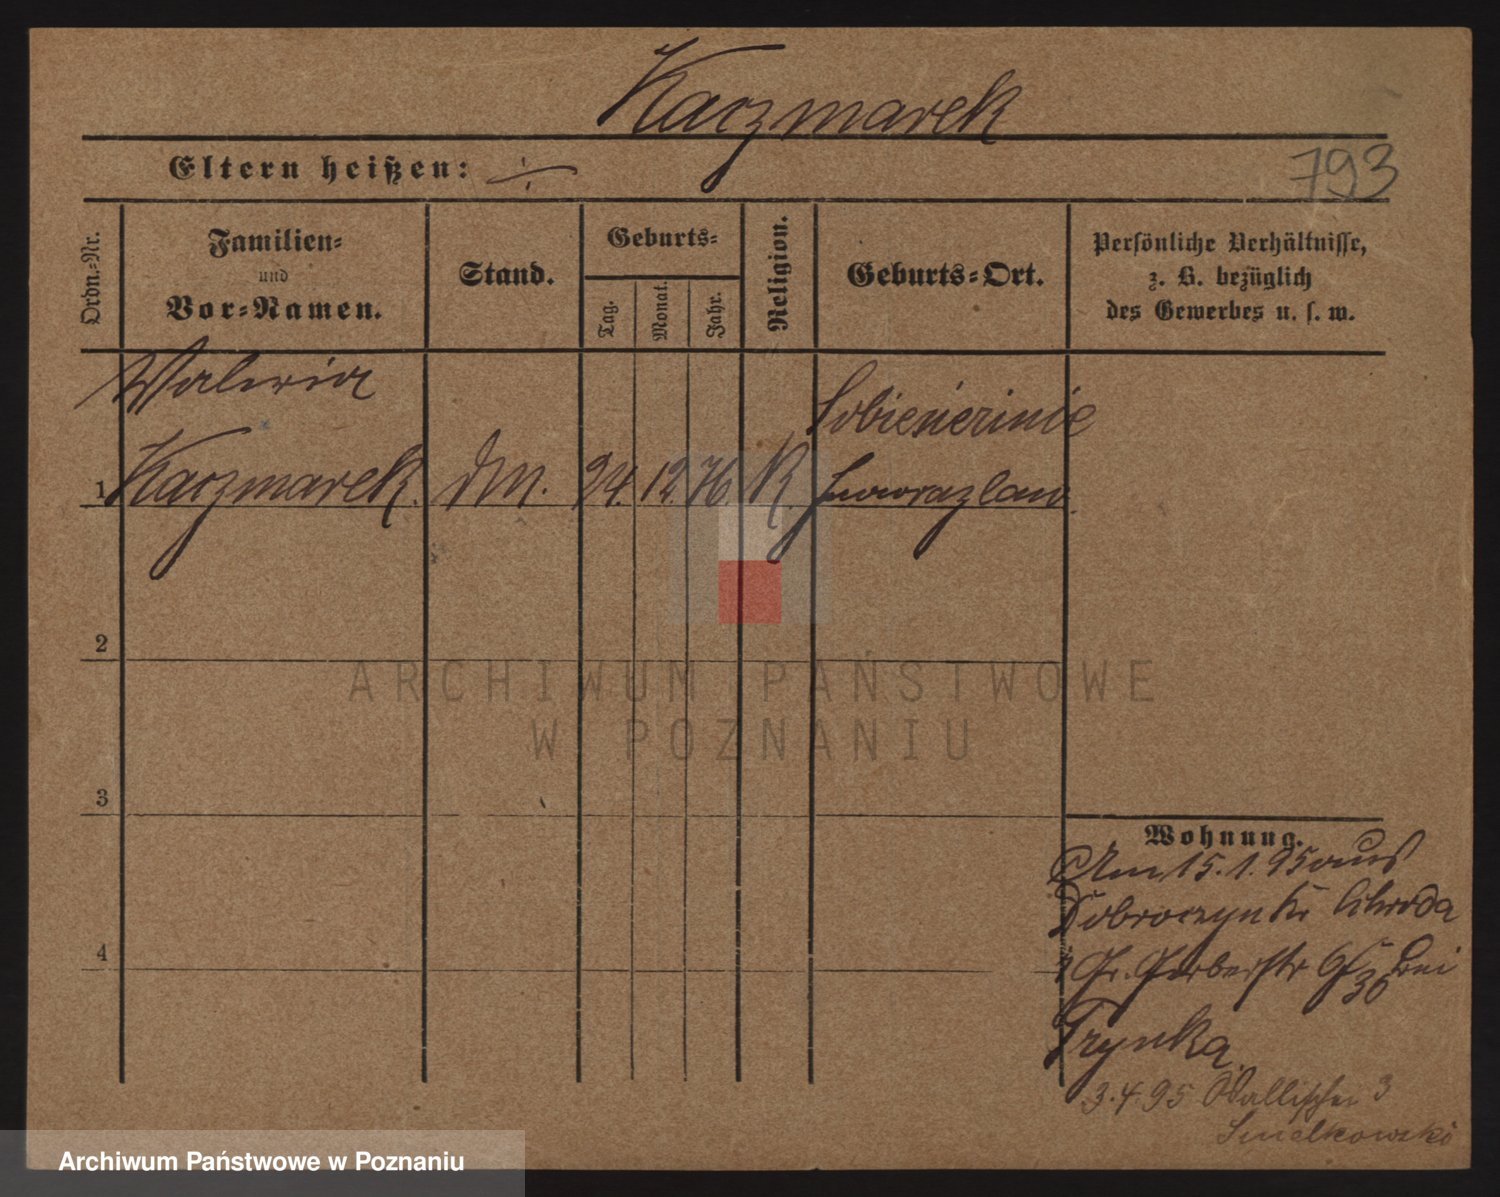 Kaczmarek
Eltern heißen: ÷
793
Ordn.-Nr.
Familien-
und
Vor-Namen.
Stand.
Geburts-
Tag.
Monat.
Jahr.
Religion.
Geburts-Ort.
Persönliche Verhältnisse,
z. B. bezüglich
des Gewerbes u. s. w.
Waleria
1 Kaczmarek. DM. 24. 12. 76. K.
Inowrazlaw.
2
3
4
Wohnung.
Am 15.1.95 aus
Schroda
Gr. Gerberstr bei
Trynka.
3.4.95 Wallischei 3
Smelkowski
ARCHIWUM PAŃSTWOWE
W POZNANIU
Archiwum Państwowe w Poznaniu